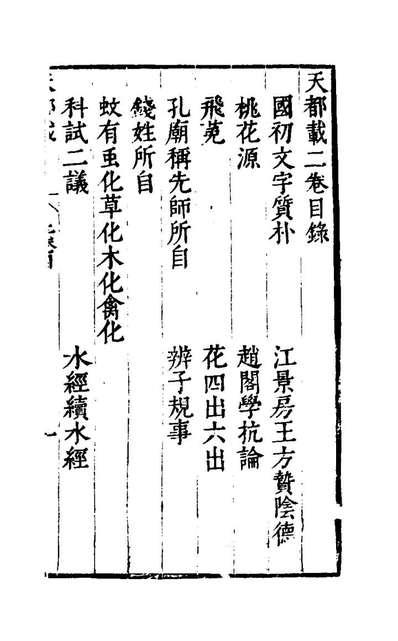 天都載二卷目錄
國初文字質朴　江景房王方贄陰德
桃花源　趙閣學抗論
飛菟　花四出六出
孔廟稱先師所自　辨子規事
錢姓所自
蚊有䖝化草化木化禽化
科試二議　水經續水經